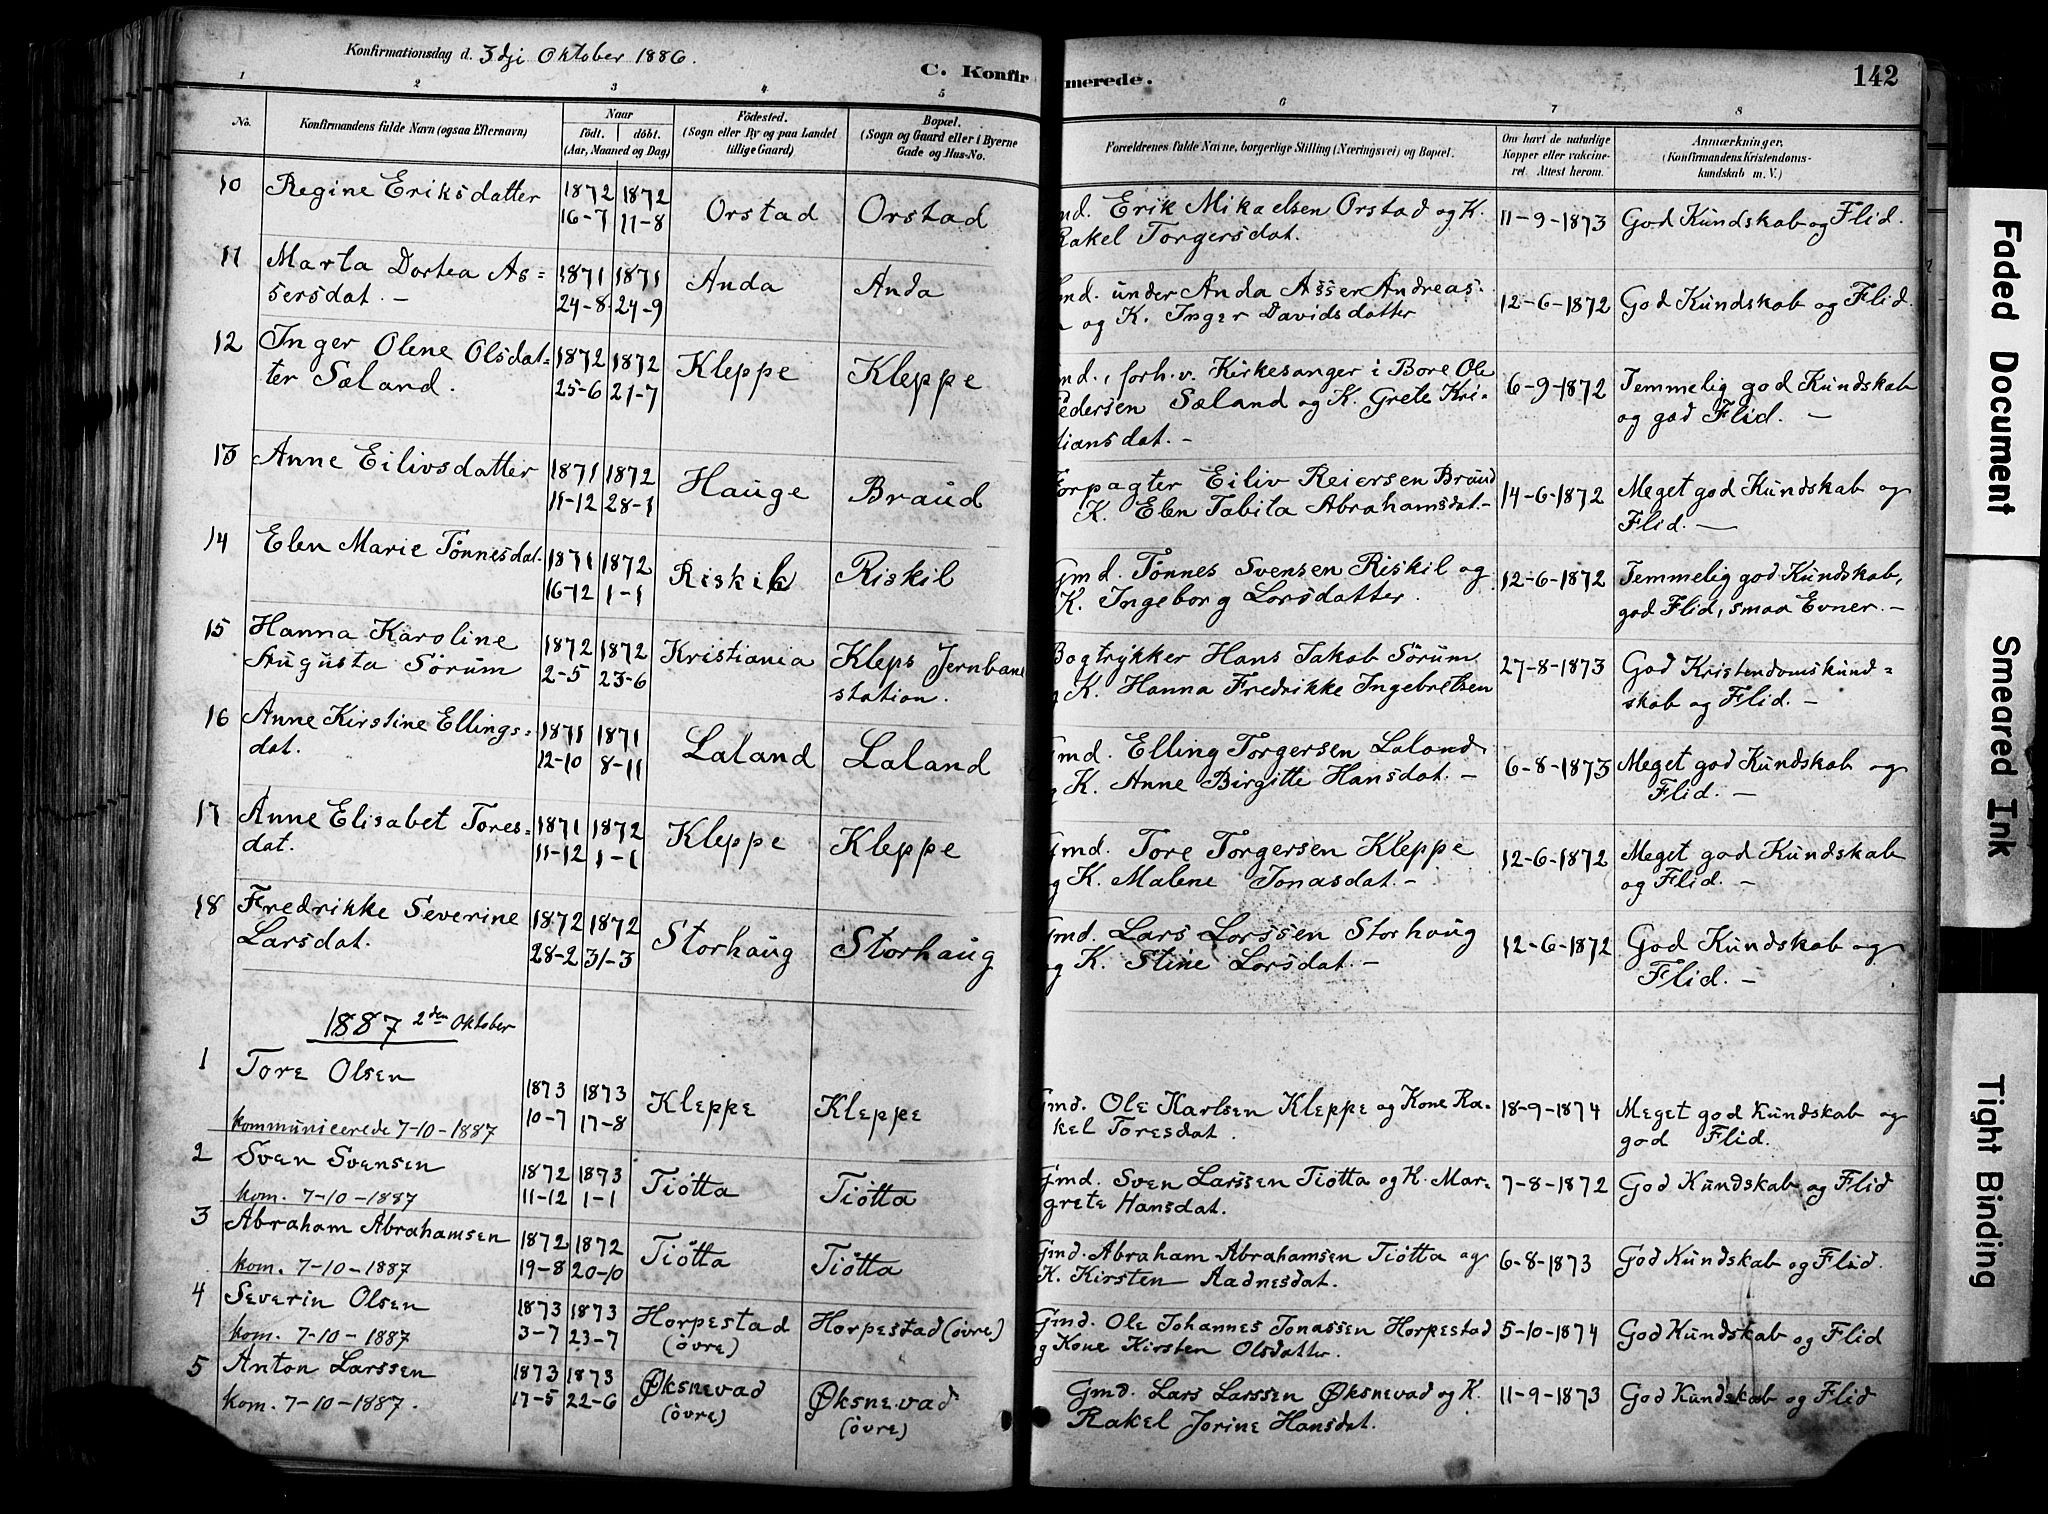 Konfirmationsdag d. 3dji Oktober 1886.
C. Konfirmerede.
142
1 2 3 4 5 6 7 8
No.
Konfirmandens fulde Navn (ogsaa Efternavn)
Naar
født. døbt.
(Aar, Maaned og Dag)
Fødested.
(Sogn eller By og paa Landet
tillige Gaard)
Bopæl.
(Sogn og Gaard eller i Byerne
Gade og Hus-No.
Forældrenes fulde Navne, borgerlige Stilling (Næringsvei) og Bopæl.
Om havt de naturlige
Kopper eller vakcine-
ret. Attest herom.
Anmærkninger.
(Konfirmandens Kristendoms-
kundskab m. V.)
10 Regine Eriksdatter 1872 1872 Orstad Orstad md. Erik Mikaelsen Orstad og K. 11-9-1873 God Kundskab og Flid.
16-7 11-8 Rakel Torgersdat.
11 Marta Dortea As= 1871 1871 Anda Anda md. under Anda Asser Andreas- 12-6-1872 God Kundskab og Flid.
sersdat. - 24-8 24-9 og K. Inger Davidsdatter
12 Inger Olene Olsdat- 1872 1872 Kleppe Kleppe md., forh.v. Kirkesanger i Bore Ole 6-9-1872 Temmelig god Kundskab
ter Sæland. 25-6 21-7 Pedersen Sæland og K. Grete Kri- og god Flid. -
tiansdat. -
13 Anne Eilivsdatter 1871 1872 Hauge Braud Forpagter Eiliv Reiersen Braud 14-6-1872 Meget god Kundskab og
11-12 28-1 K. Elen Tabita Abrahamsdat. - Flid. -
14 Elen Marie Tønnesdat. 1871 1872 Riskil Riskil Gmd. Tønnes Svensen Riskil og 12-6-1872 Temmelig god Kundskab,
16-12 1-1 K. Ingeborg Larsdatter. god Flid, smaa Evner. -
15 Hanna Karoline 1872 1872 Kristiania Kleps Jernbane Bogtrykker Hans Jakob Sørum 27-8-1873 God Kristendomskund=
Augusta Sørum 2-5 23-6 station. K. Hanna Fredrikke Ingebretsen skab og Flid. -
16 Anne Kirstine Ellings= 1871 1871 Laland Laland Gmd. Elling Torgersen Laland 6-8-1873 Meget god Kundskab og
dat. 12-10 8-11 K. Anne Birgitte Hansdat. - Flid. -
17 Anne Elisabet Tores- 1871 1872 Kleppe Kleppe Gmd. Tore Torgersen Kleppe 12-6-1872 Meget god Kundskab
dat. 11-12 1-1 og K. Malene Jonasdat. - og Flid. -
18 Fredrikke Severine 1872 1872 Storhaug Storhaug Gmd. Lars Larssen Storhaug 12-6-1872 God Kundskab og
Larsdat. 28-2 31-3 og K. Stine Larsdat. - Flid. -
1887 2den Oktober
1 Tore Olsen 1873 1873 Kleppe Kleppe Gmd. Ole Karlsen Kleppe og Kone Ra- 18-9-1874 Meget god Kundskab og
kommunicerede 7-10-1887 10-7 17-8 kel Toresdat. god Flid.
2 Sven Svensen 1872 1873 Tiøtta Tiøtta Gmd. Sven Larssen Tiøtta og K. Mar- 7-8-1872 God Kundskab og Flid
kom. 7-10-1887 11-12 1-1 grete Hansdat.
3 Abraham Abrahamsen 1872 1872 Tiøtta Tiøtta Gmd. Abraham Abrahamsen Tiøtta og 6-8-1873 God Kundskab og Flid.
kom. 7-10-1887 19-8 20-10 K. Kirsten Aadnesdat.
4 Severin Olsen 1873 1873 Horpestad Horpestad (øvre) Gmd. Ole Johannes Jonassen Horpestad 5-10-1874 God Kundskab og Flid
kom. 7-10-1887 3-7 23-7 (øvre) og Kone Kirsten Olsdatter.
5 Anton Larssen 1873 1873 Øksnevad Øksnevad Gmd. Lars Larssen Øksnevad og K. 11-9-1873 God Kundskab og Flid
kom. 7-10-1887. 17-5 22-6 (øvre) (øvre) Rakel Jorine Hansdat.
Faded Document
Smeared Ink
Tight Binding